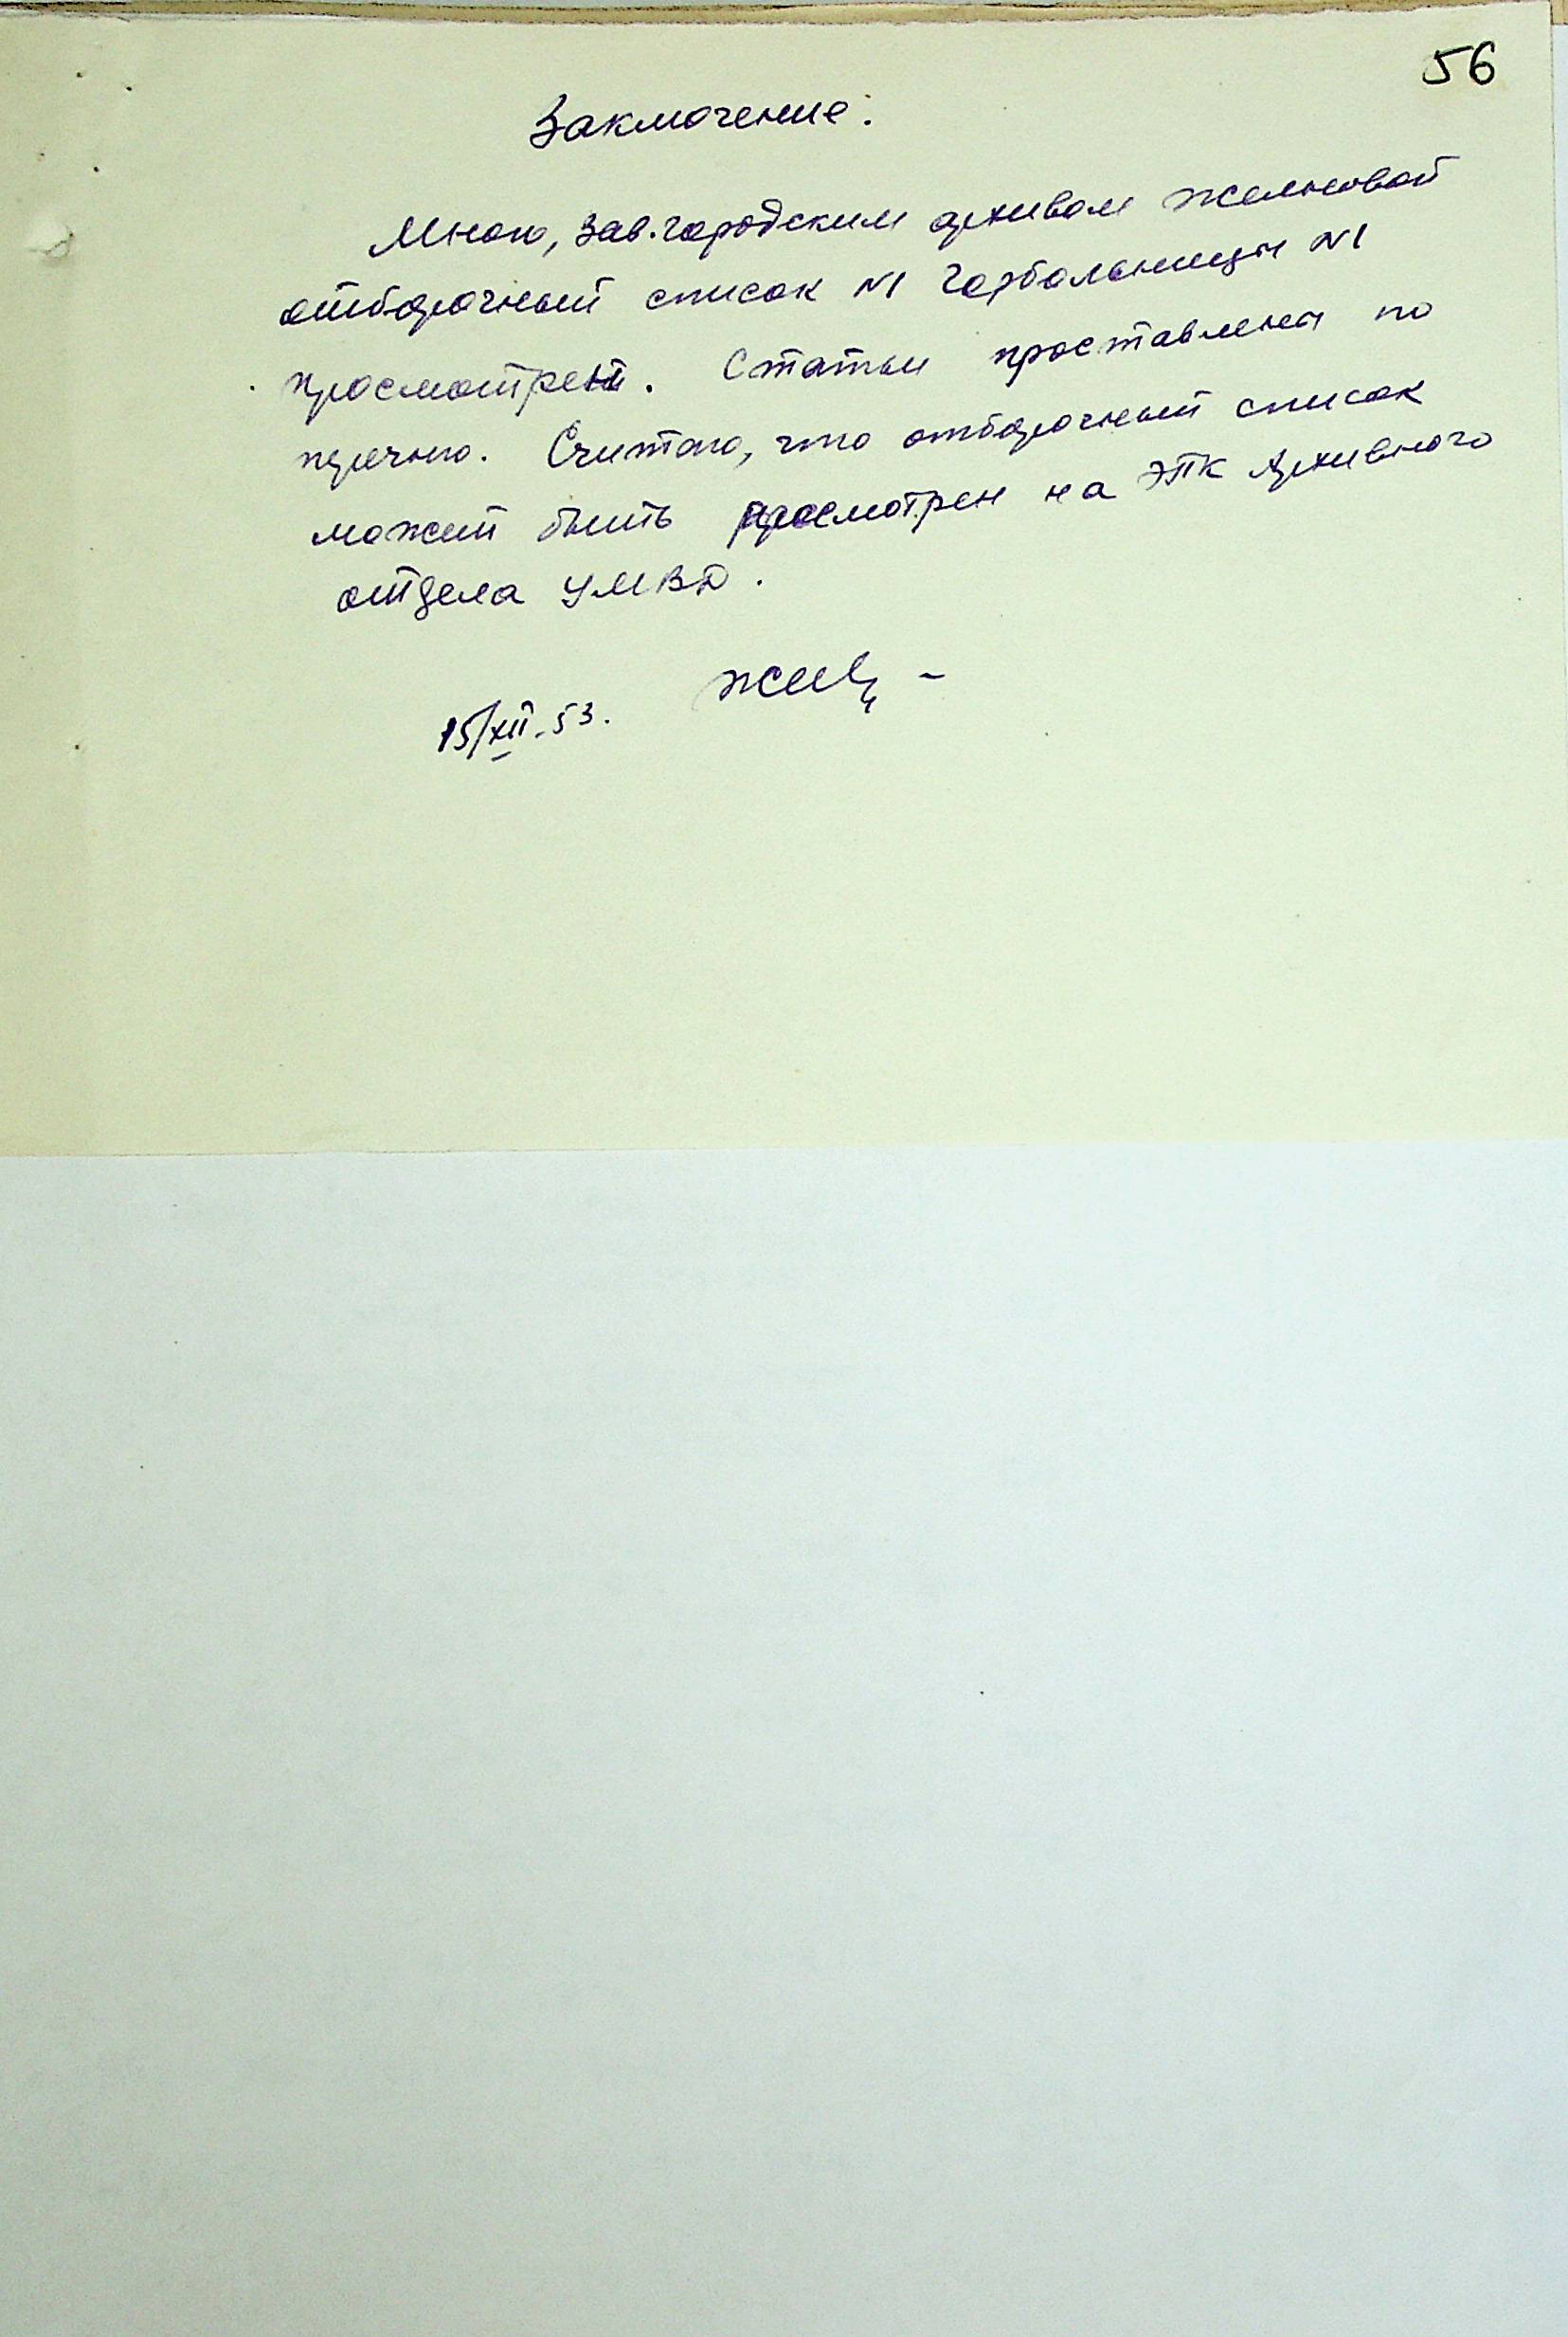 56
Заключение.
Мною, зав. городским архивом Желновой
отборочный список №1 Горбольницы №1
просмотрен. Статьи проставлены по
перечню. Считаю, что отборочный список
может быть просмотрен на ЭПК Архивного
отдела УМВД.
15/XII-53.